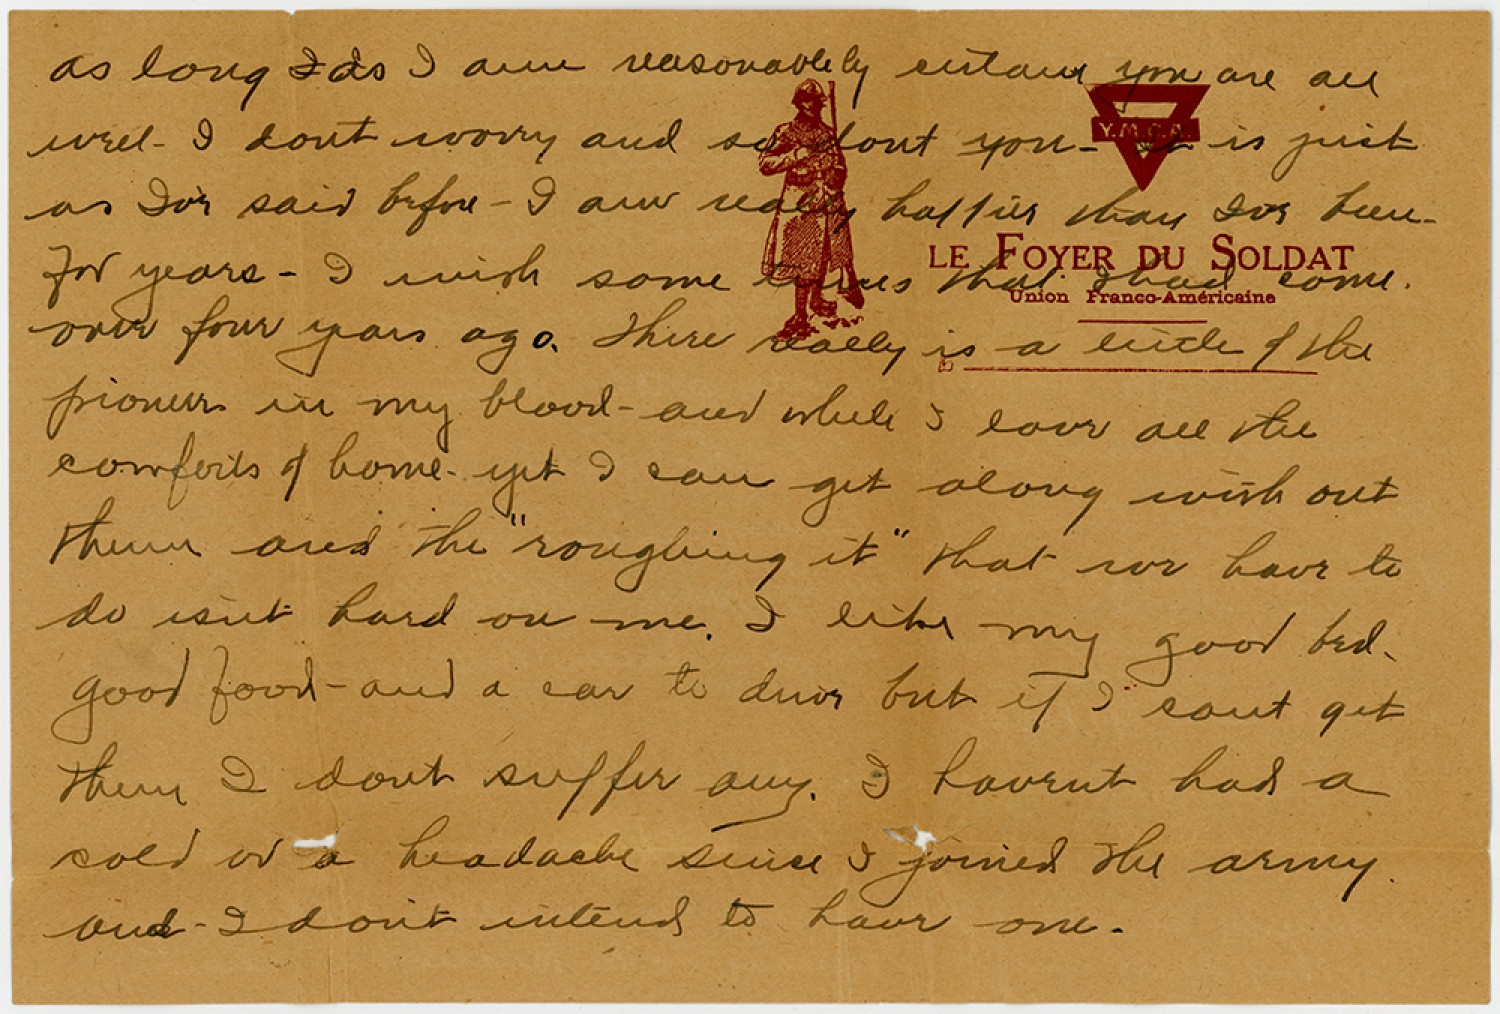 as long I as I am reasonably certain you are all
well - I dont worry and so dont you - It is just
as Ive said before - I am really happier than Ive been
for years - I wish some times that I had come
over four years ago. There really is a little of the
pioneer in my blood - and while I love all the
comforts of home - yet I can get along with out
them and the "roughing it" that we have to
do isn't hard on me. I like my good bed,
good food - and a car to drive but if I cant get
them I dont suffer any. I havent had a
cold or a headache since I joined the army
and - I don't intend to have one.
Y.M.C.A.
LE FOYER DU SOLDAT
Union Franco-Américaine